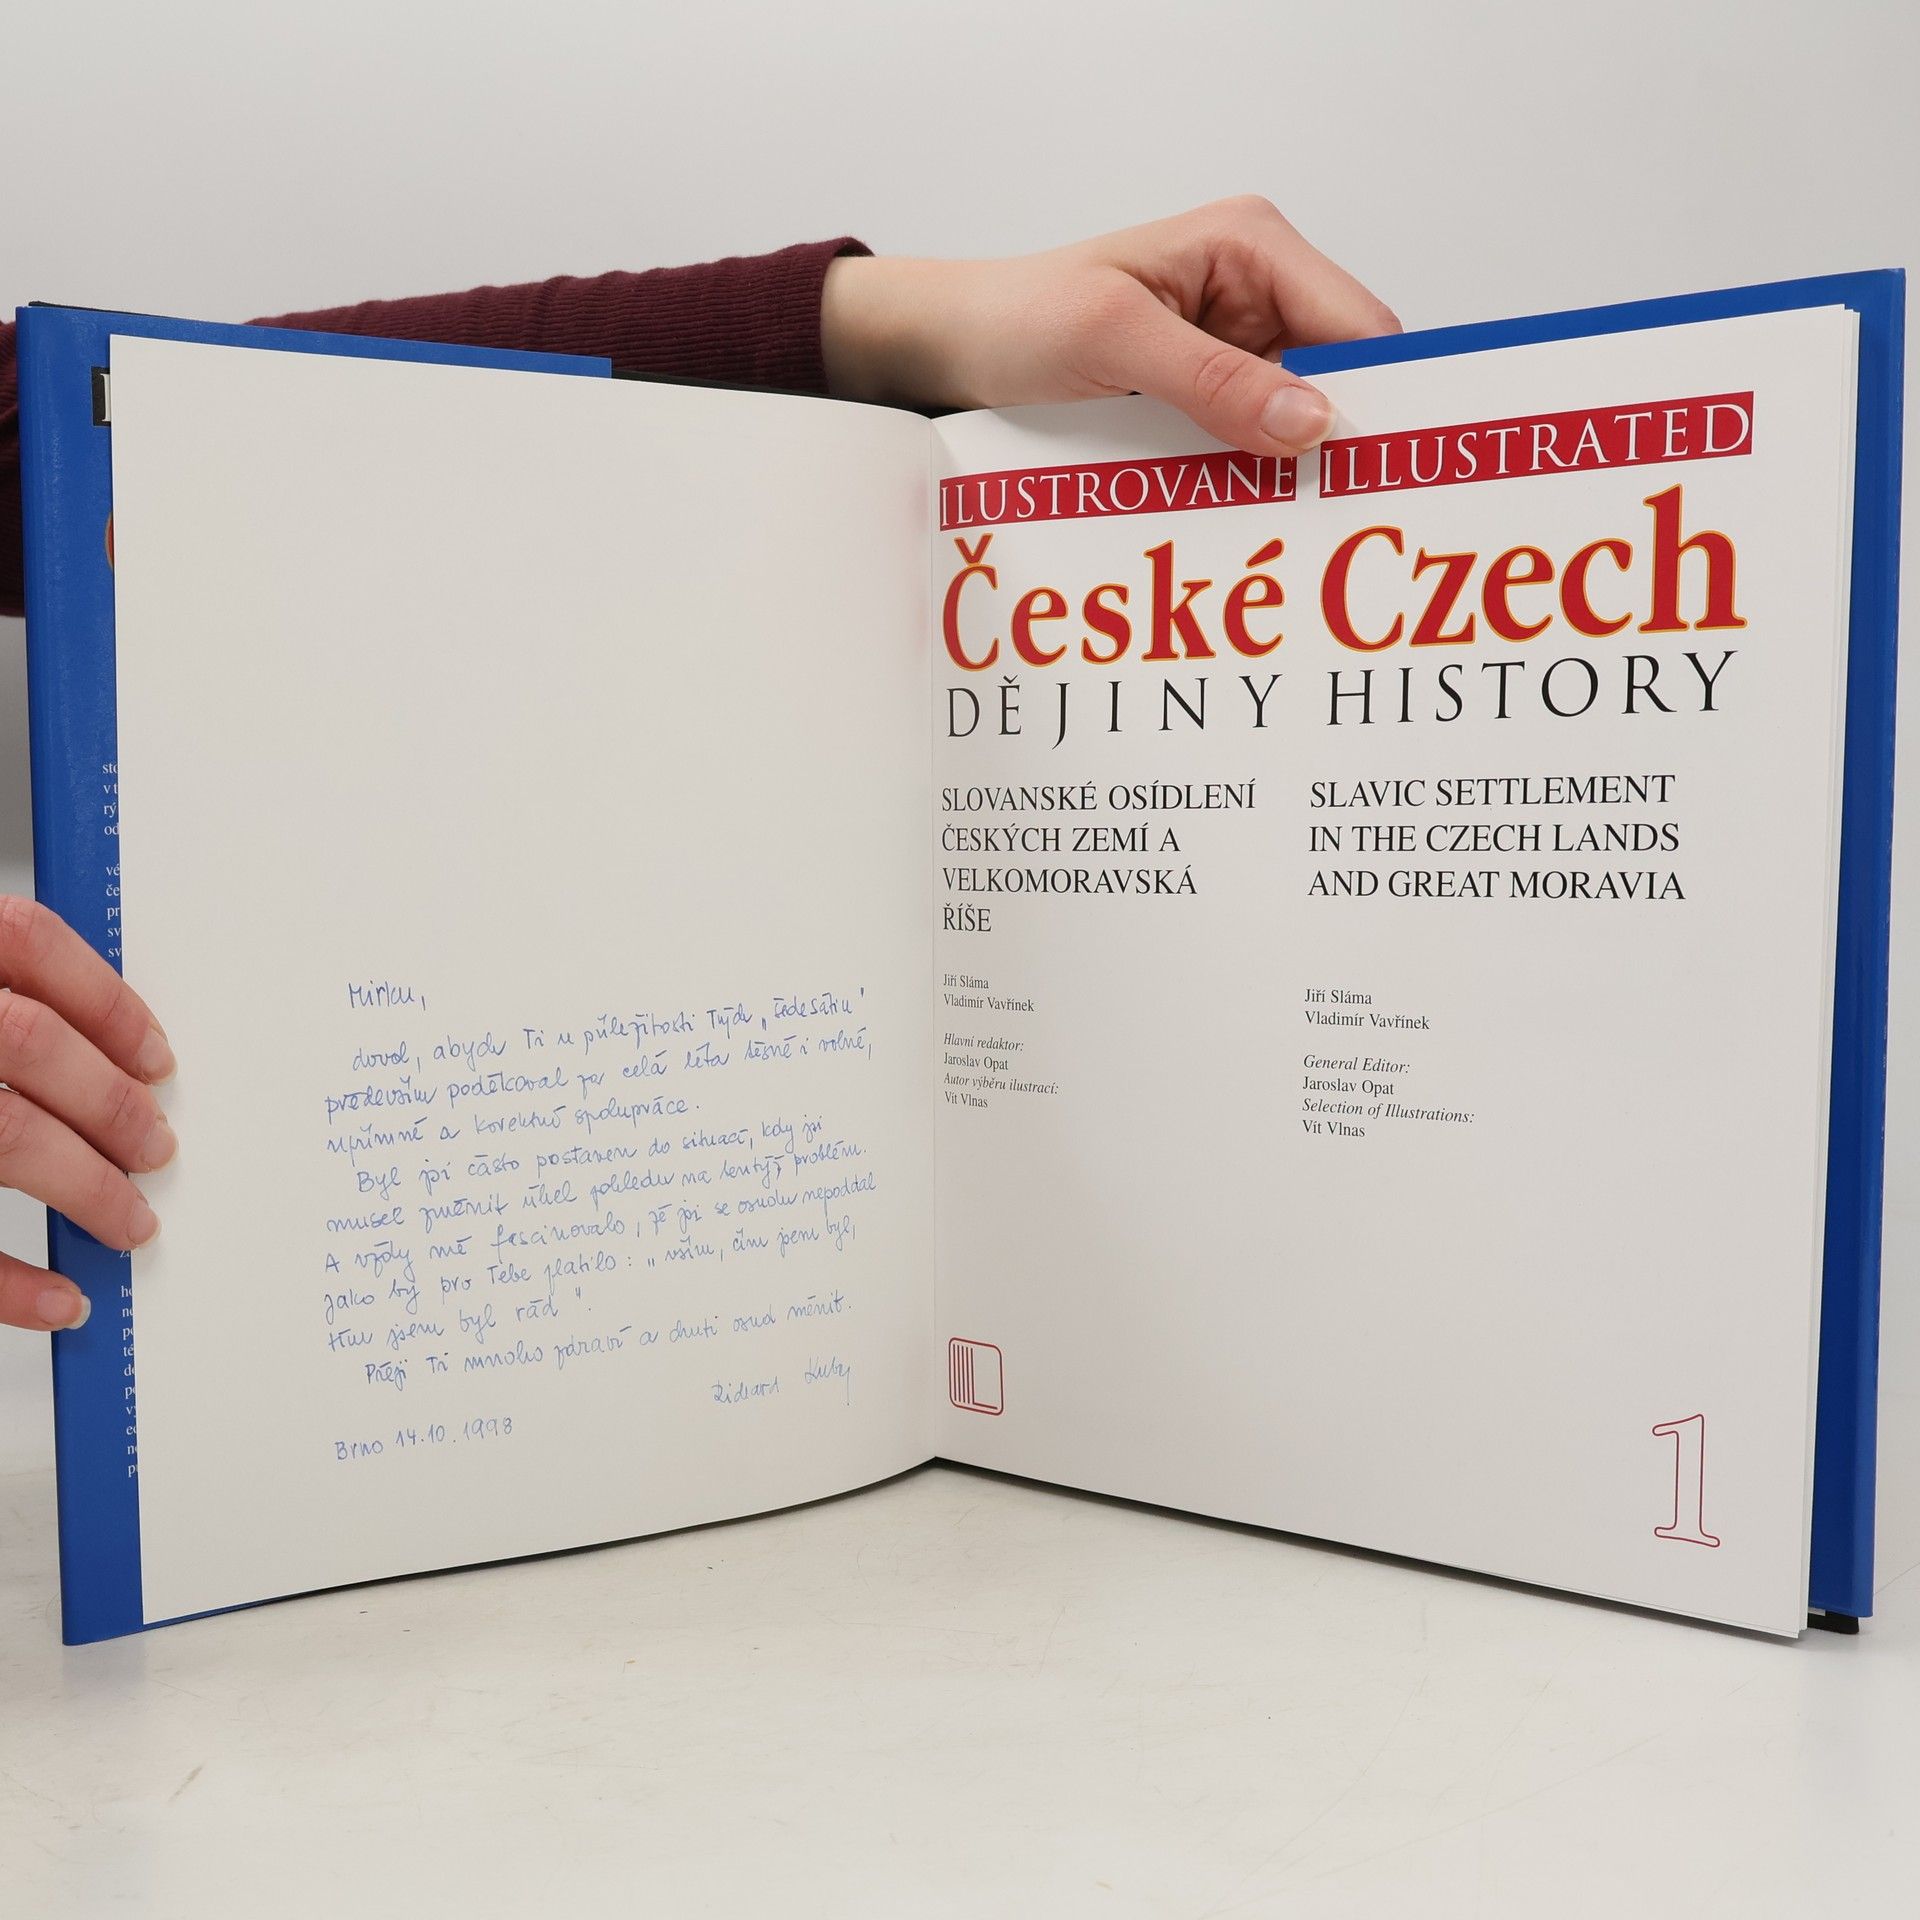 Mirku,
dovol, abych Ti u příležitosti Tvých „šedesátin"
především poděkoval za celá léta těsné i volné,
upřímné a korektní spolupráce.
Byl jsi často postaven do situací, kdy jsi
musel změnit úhel pohledu na tentýž problém.
A vždy mě fascinovalo, že jsi se osudu nepoddal
jako by pro Tebe platilo: „vším, čím jsem byl,
tím jsem byl rád".
Přeji Ti mnoho zdraví a chuti osud měnit.
Richard
Brno 14.10.1998
ILUSTROVANÉ
České
DĚJINY
SLOVANSKÉ OSÍDLENÍ
ČESKÝCH ZEMÍ A
VELKOMORAVSKÁ
ŘÍŠE
Jiří Sláma
Vladimír Vavřínek
Hlavní redaktor:
Jaroslav Opat
Autor výběru ilustrací:
Vít Vlnas
ILLUSTRATED
Czech
HISTORY
SLAVIC SETTLEMENT
IN THE CZECH LANDS
AND GREAT MORAVIA
Jiří Sláma
Vladimír Vavřínek
General Editor:
Jaroslav Opat
Selection of Illustrations:
Vít Vlnas
L
1